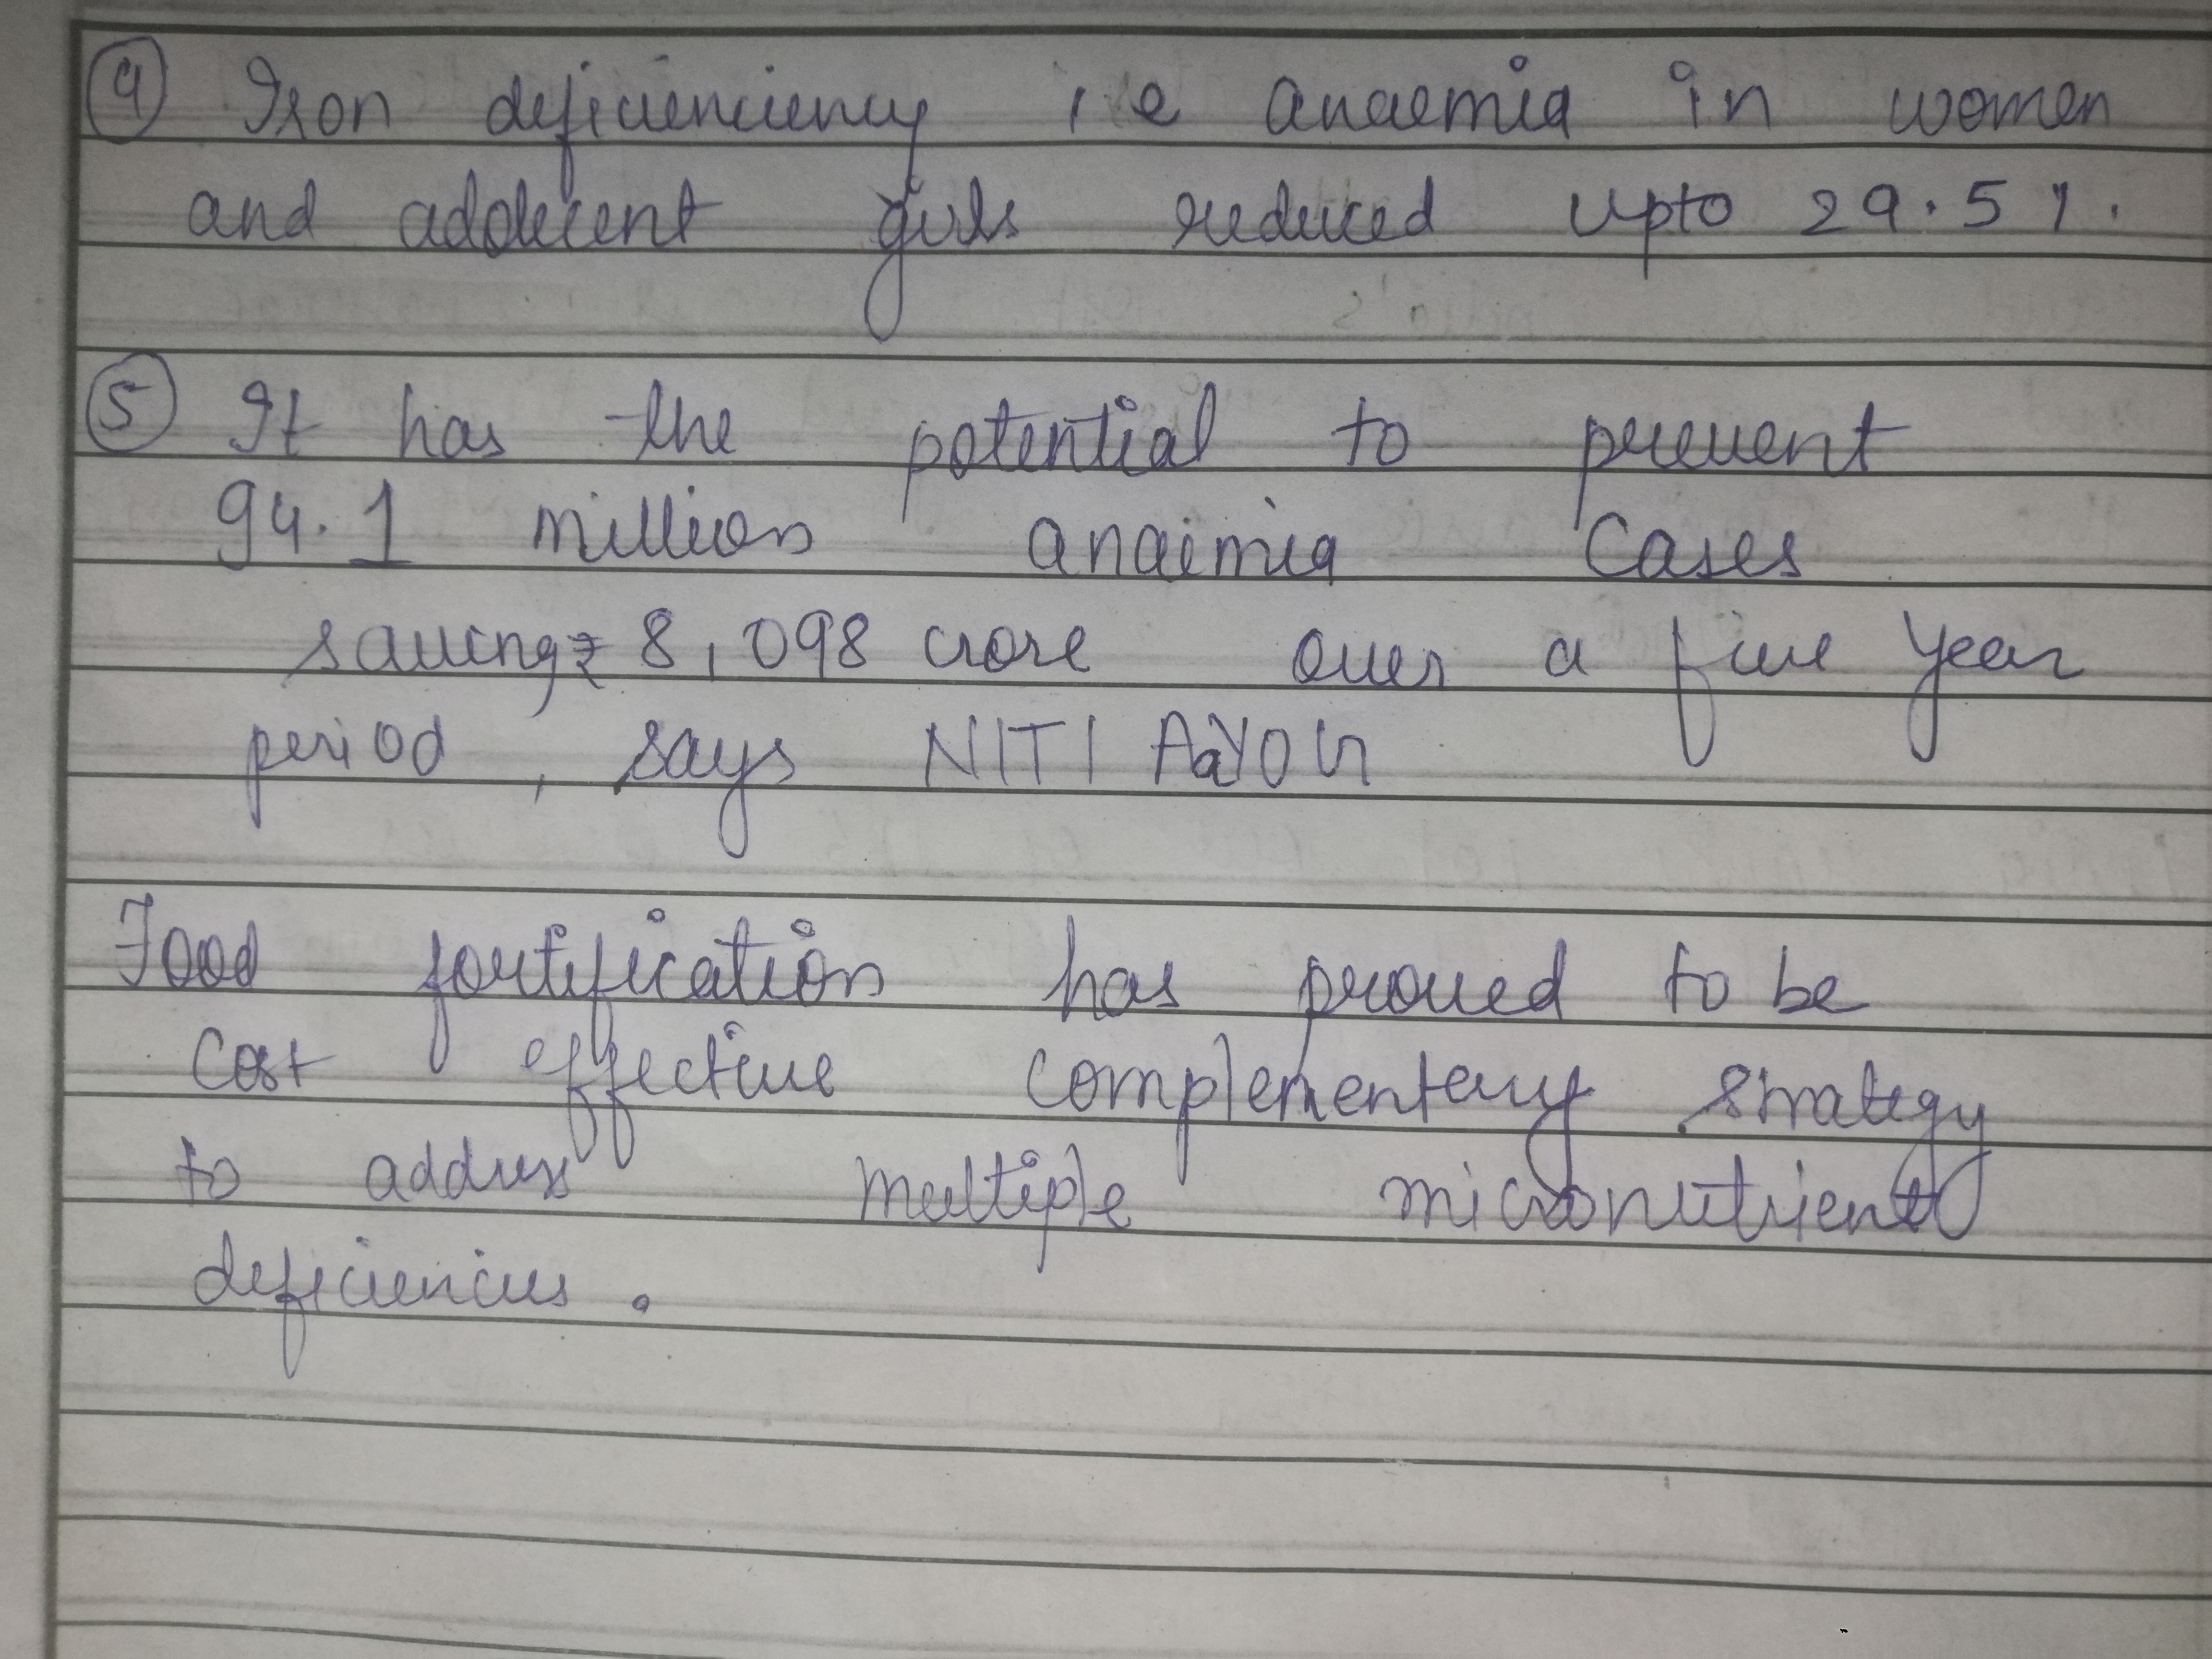 ④ Iron deficienciency i.e anaemia in women
and adolecent girls reduced upto 29.5%.
⑤ It has the potential to prevent
94.1 million anaimia Cases
saving ₹ 8,098 crore over a five year
period, says NITI AaYOG
Food fortification has proved to be
Cost effective complementary strategy
to address multiple micronutrient
deficiencies.